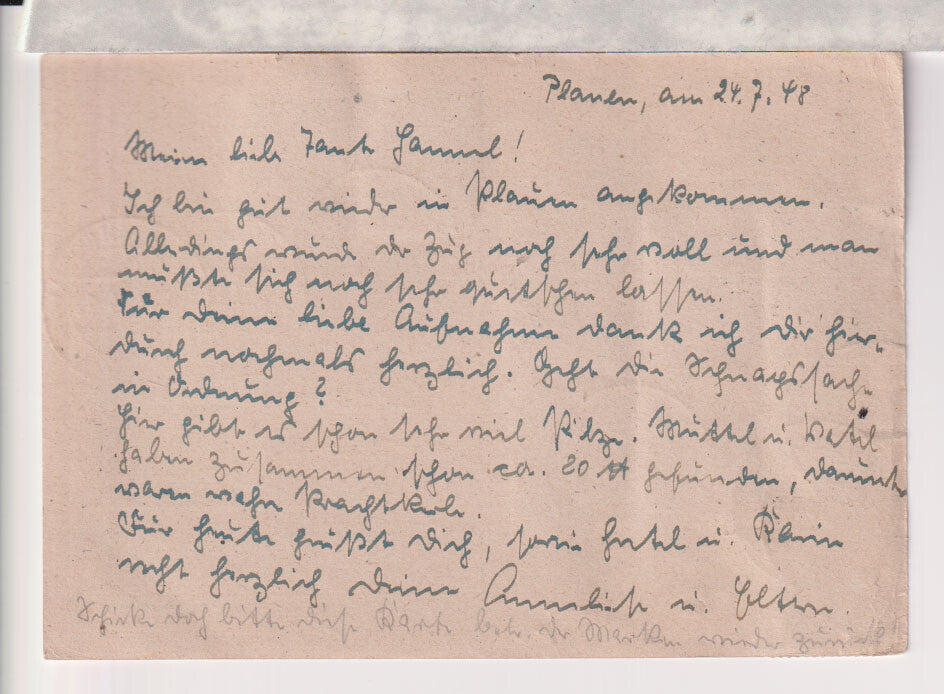 Plauen, am 24.7.48
Meine liebe Tante Hannel!
Ich bin gut wieder in Plauen angekommen.
Allerdings wurde der Zug noch sehr voll und man
mußte sich noch sehr quetschen lassen.
Für deine liebe Aufnahme dank ich dir hier-
durch nochmals herzlich. Geht die Schnapssache
in Ordnung?
Hier gibt es schon sehr viel Pilze. Muttel u. Vatel
haben zusammen schon ca. 20 ℔ gefunden, darunter
waren wahre Prachtkerle.
Für heute grüßt Dich, sowie u.
recht herzlich deine Anneliese u. Eltern.
Schicke doch bitte diese Karte betr. der Marken wieder zurück!